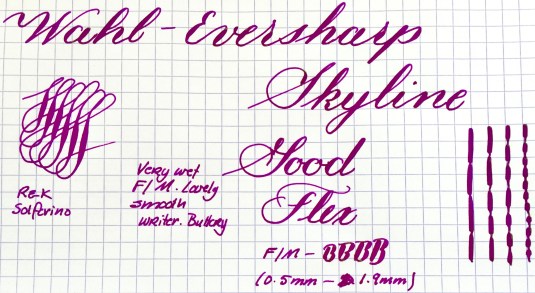 Wahl-Eversharp
Skyline
Good
Flex
F/M - BBBB
(0.5mm - 1.9mm)
Very wet
F/M. Lovely
smooth
writer. Buttery
R&K
Solferino